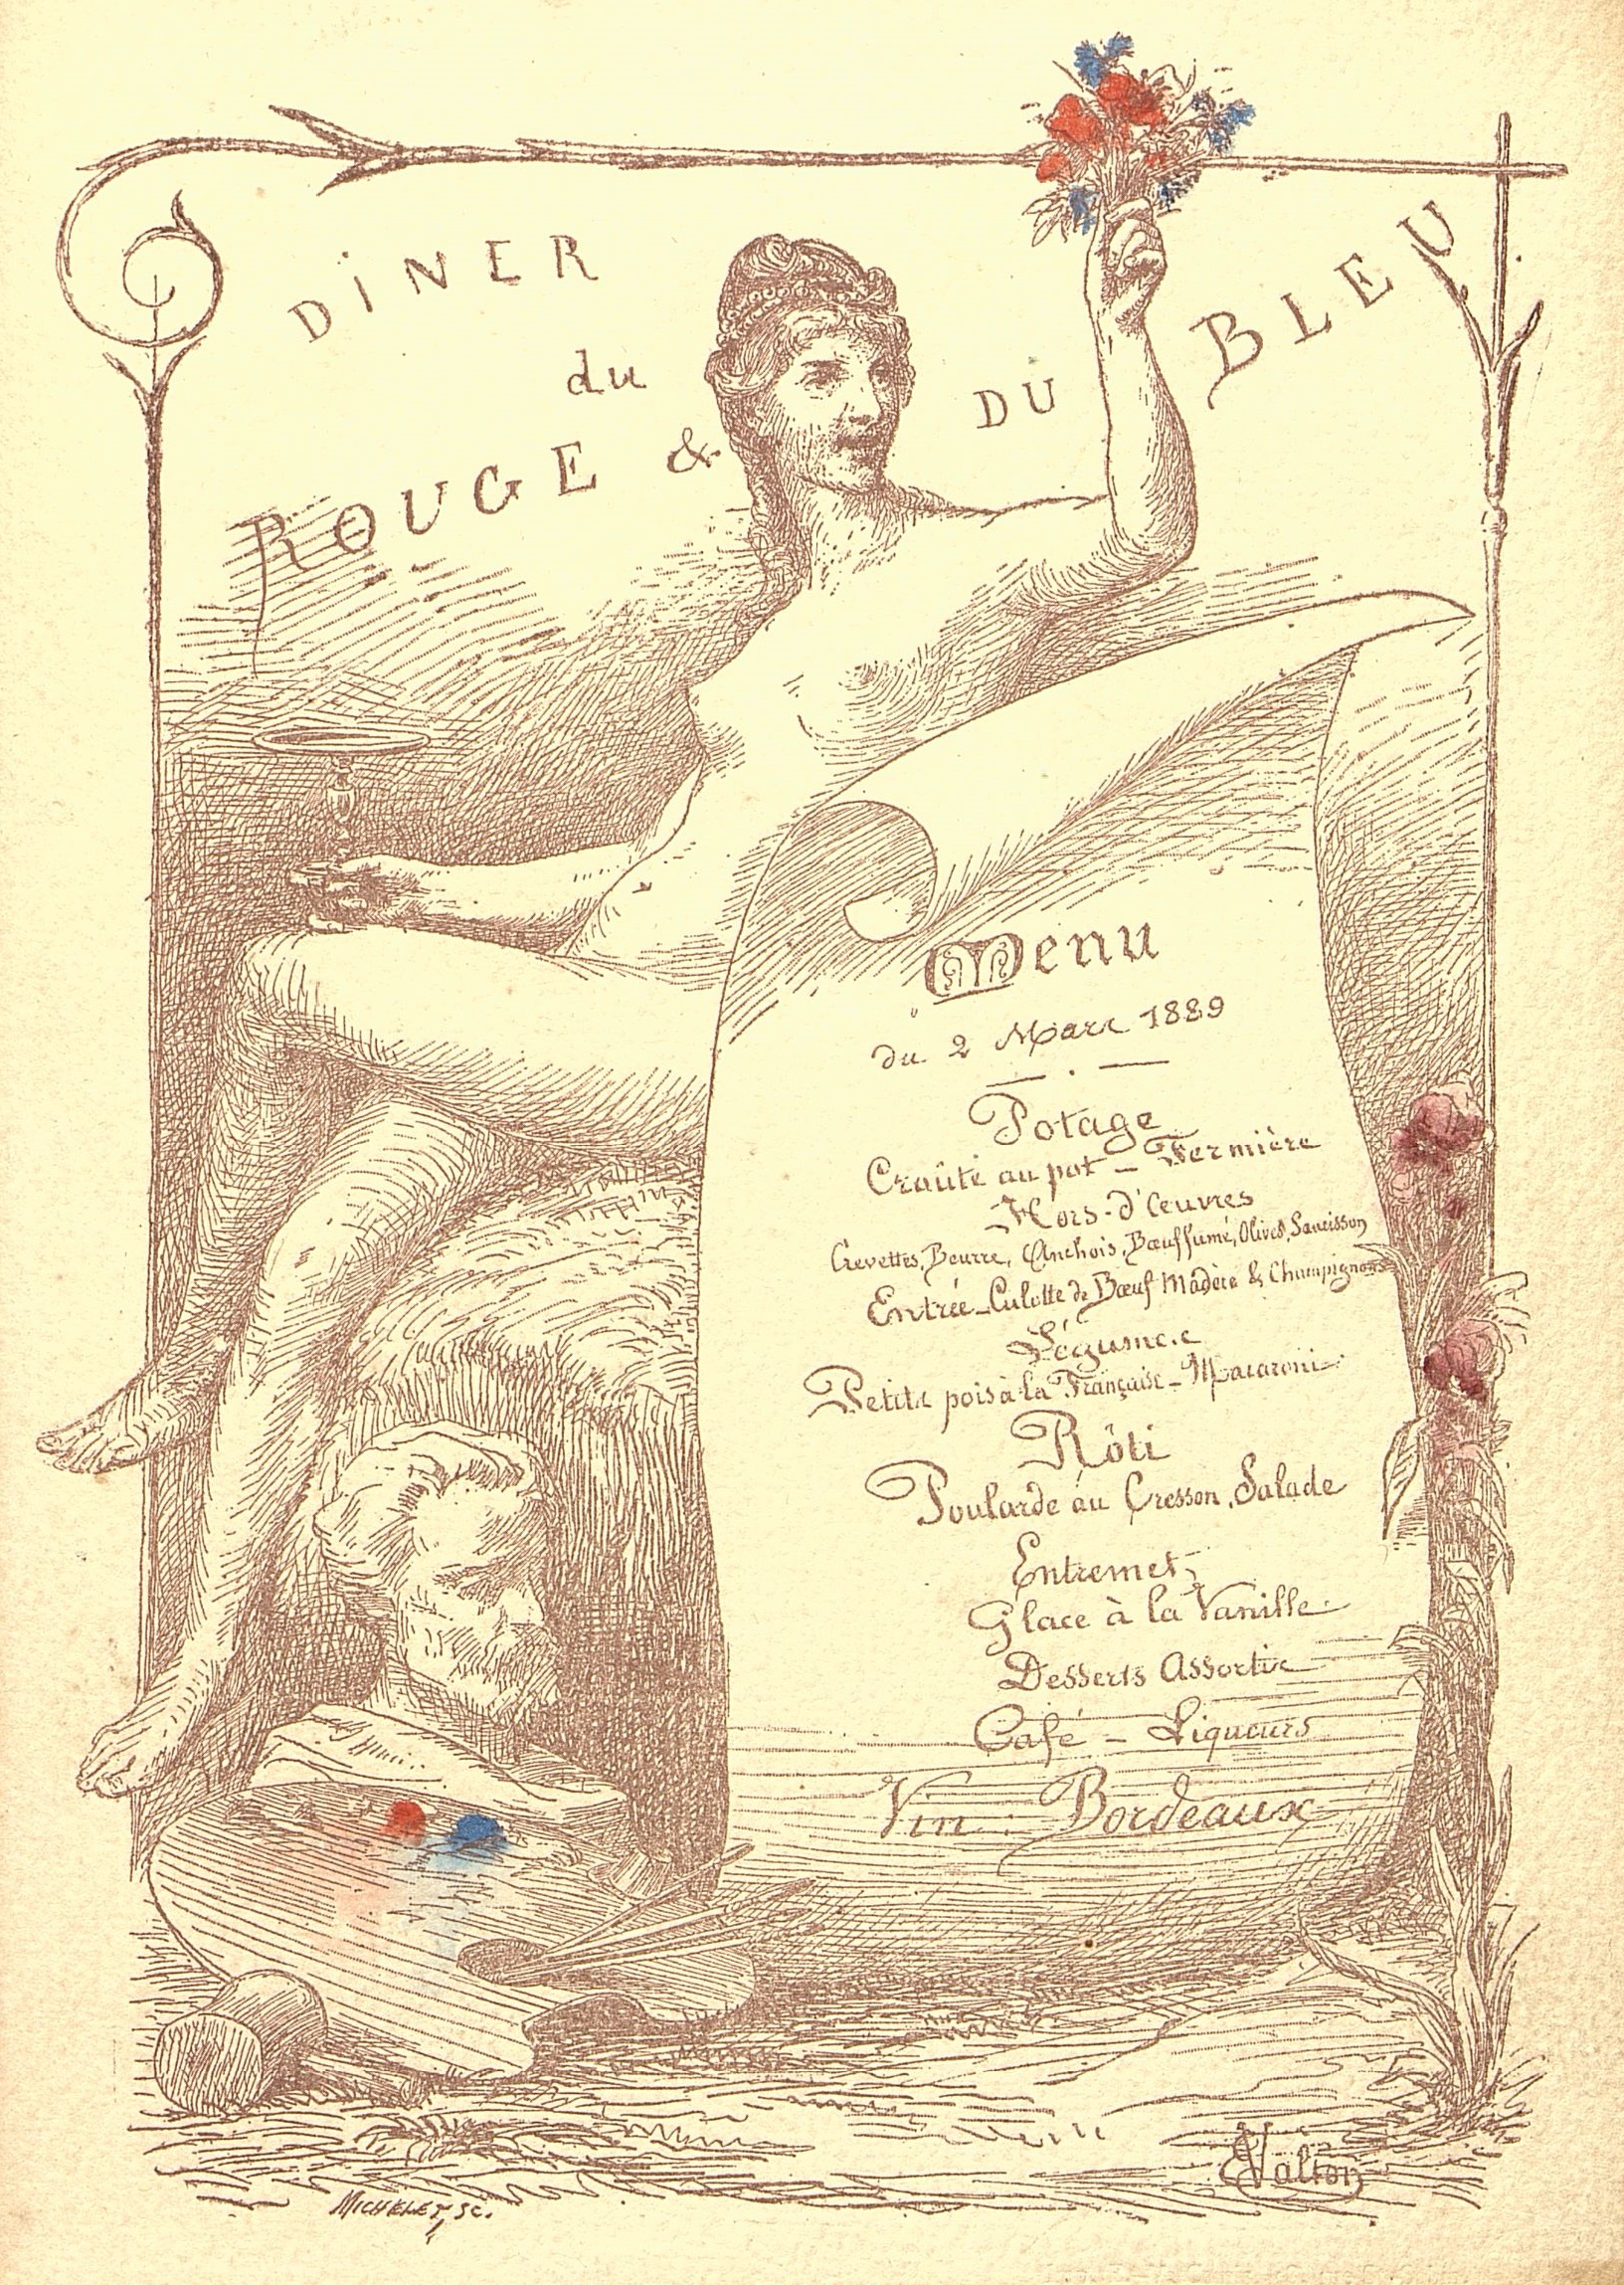 DINER
du
ROUGE & DU BLEU
Menu
du 2 Mars 1889
Potage
Croûte au pot - Fermière
Hors-d'Œuvres
Crevettes, Beurre, Anchois, Bœuf fumé, Olives, Saucisson
Entrée - Culotte de Bœuf Madère & Champignons
Légumes
Petits pois à la Française - Macaroni
Rôti
Poularde au Cresson, Salade
Entremets
Glace à la Vanille
Desserts Assortis
Café - Liqueurs
Vin : Bordeaux
EValton
MICHELET, SC.